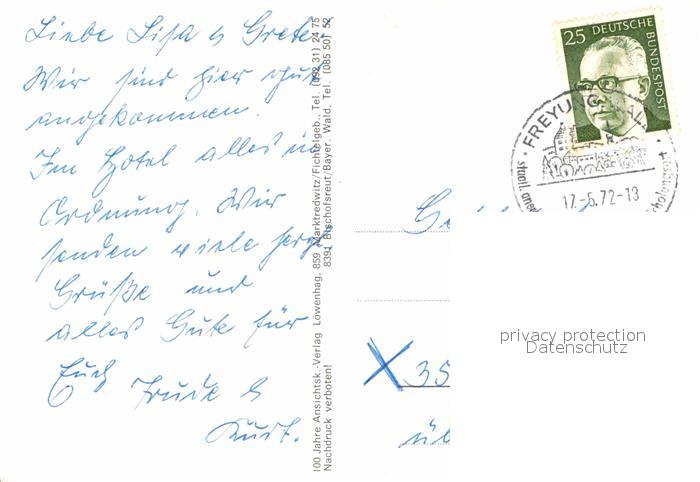 Liebe Lisa u Grete
Wir sind hier gut
angekommen.
Im Hotel alles in
Ordnung. Wir
senden viele herzl.
Grüße und
alles Gute für
Euch
Trude u
Kurt.
100 Jahre Ansichtsk.-Verlag Löwenhag, 859 Marktredwitz/Fichtelgeb., Tel. (092 31) 24 75
8391 Bischofsreut/Bayer. Wald, Tel. (085 50) 52
Nachdruck verboten!
25 DEUTSCHE BUNDESPOST
FREYUNG
staatl. aner
17.-5.72-13
35
privacy protection
Datenschutz